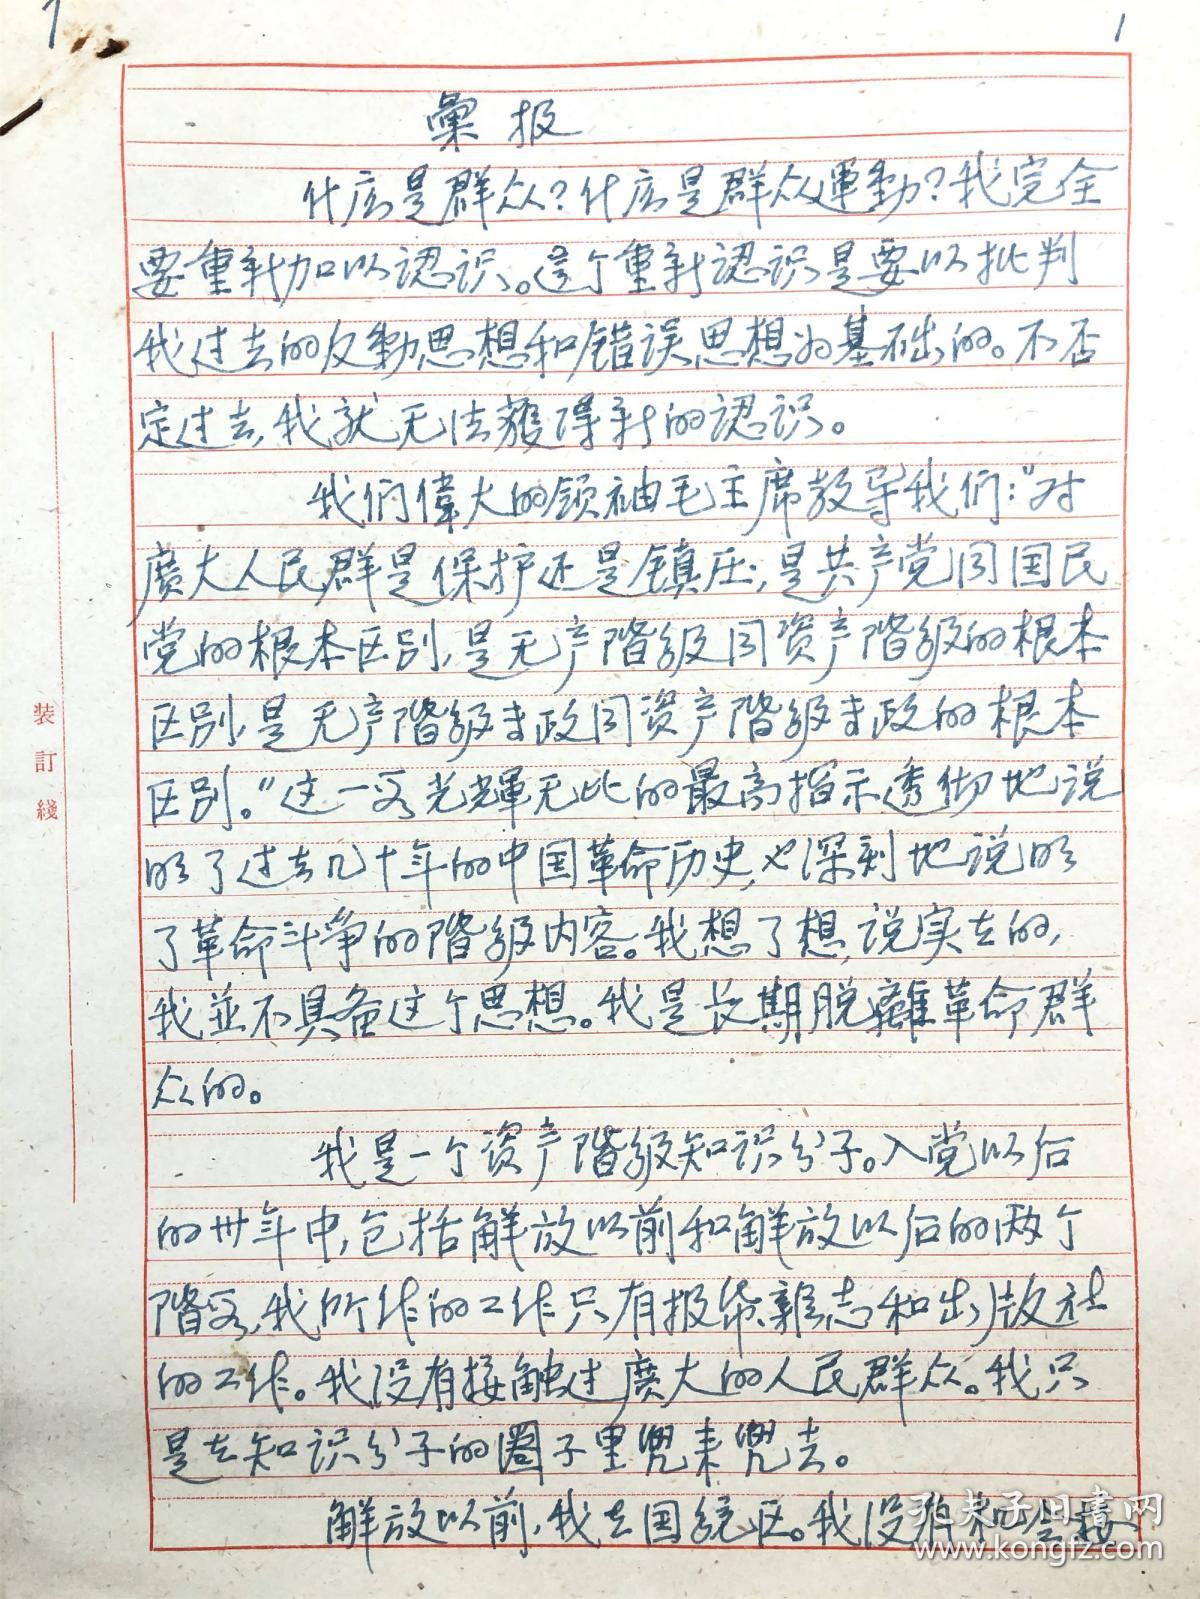 1
彙报
什么是群众?什么是群众運動?我完全
要重新加以認识。這个重新認识是要以批判
我过去的反動思想和错误思想为基础的。不否
定过去,我就无法獲得新的認识。
我们偉大的领袖毛主席教导我们:“对
廣大人民群是保护还是镇压,是共产党同国民
党的根本区别,是无产階级同资产階级的根本
区别,是无产階级专政同资产階级专政的根本
区别。”这一段光輝无比的最高指示透彻地说
明了过去几十年的中国革命历史,也深刻地说明
了革命斗争的階级内容。我想了想,说实在的,
我並不具备这个思想。我是长期脱離革命群
众的。
我是一个资产階级知识分子。入党以后
的卅年中,包括解放以前和解放以后的两个
階段,我所作的工作只有报纸、雜志和出版社
的工作。我没有接触过廣大的人民群众。我只
是在知识分子的圈子里兜来兜去。
解放以前,我在国统区。我没有和
装訂綫
孔夫子旧書网
www.kongfz.com